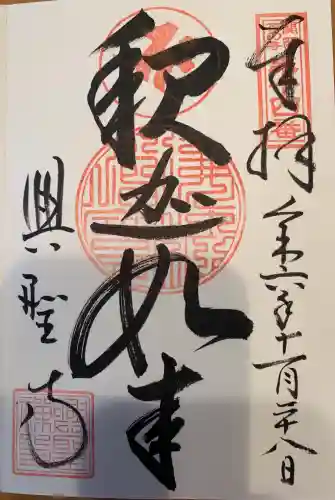 奉拝
令和六年十一月二十八日
釈迦如来
興聖寺